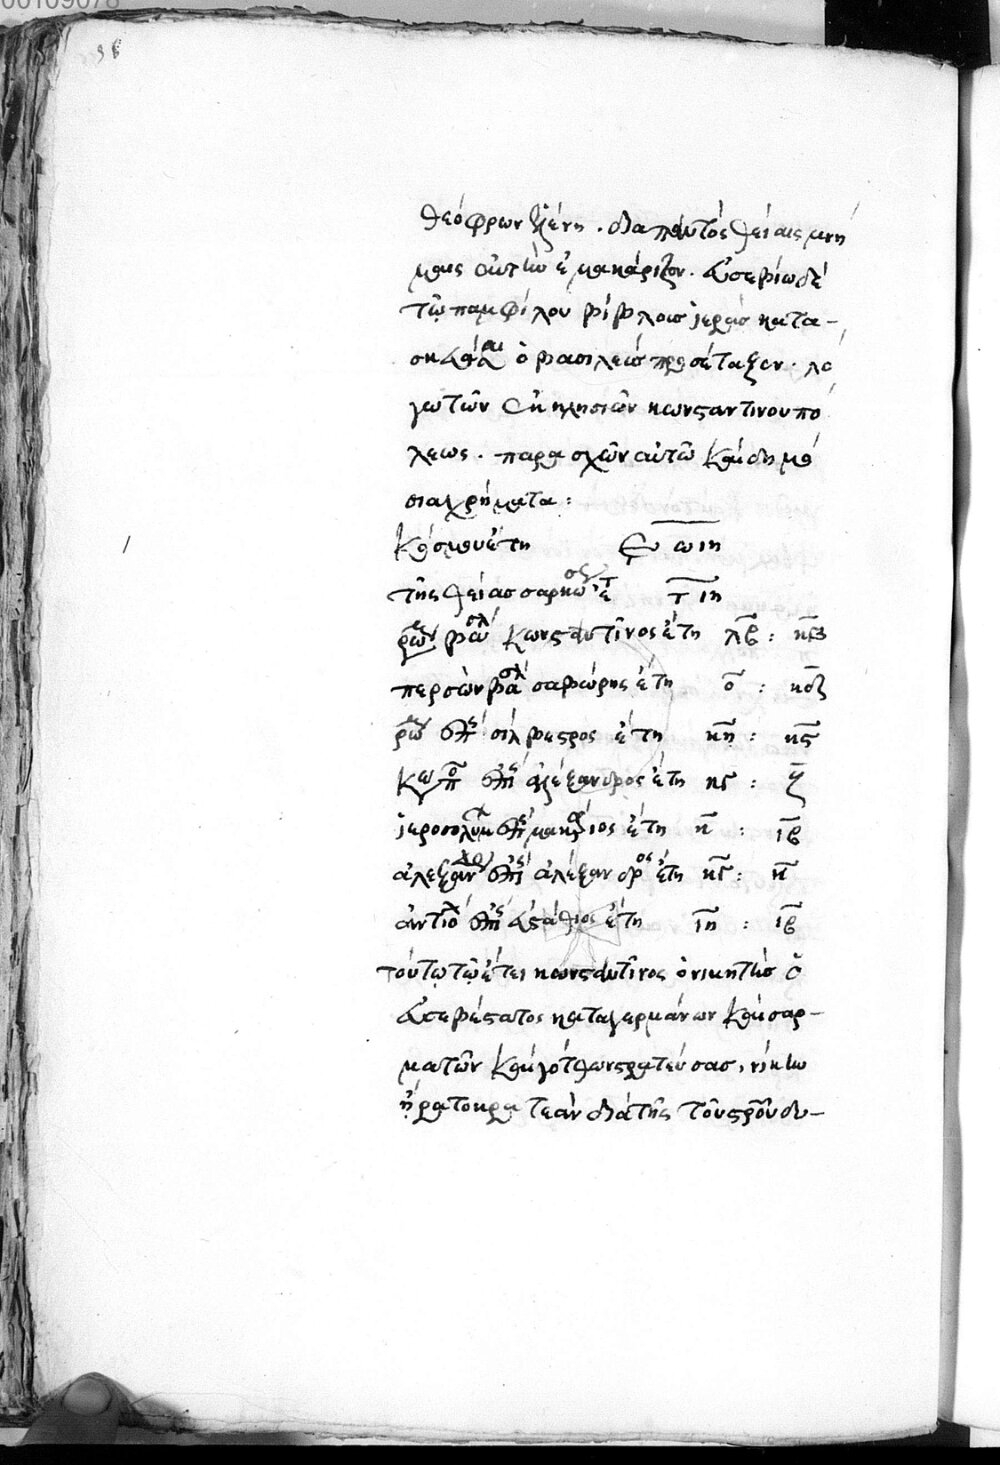 00109078
θεόφρων ἑλένη. διαπαντὸς θείαις μνή
μαις αὐτὴν ἐμακάριζον. εὐσεβίω δὲ
τῷ παμφίλου βίβλους ἱερὰς κατα-
σκευάσαι ὁ βασιλεὺς προσέταξεν. λό
γω τῶν ἐκκλησιῶν κωνσταντινουπό
λεως. παρασχὼν αὐτῶ καὶ δημό
σια χρήματα:
Κόσμου ἔτη ͵εωιη
τῆς θείας σαρκώσε ἔτ τιη
ρω βασιλ Κωνσταντῖνος ἔτη λβ :
περσῶν βασιλ σαβώρης ἔτη ο :
ρω ἐπί σίλβεστρος ἔτη κη :
Κω π ἐπίσ ἀλέξανδρος ἔτη
ἱεροσολύμ ἐπίσ μακάριος ἔτη κ : ιβ
ἀλεξαν ἐπίσ ἀλέξανδρος ἔτη : κ
ἀντιοχ ἐπίσ εὐστάθιος ἔτη ιη : ιβ
τούτῳ τῷ ἔτει κωνσταντῖνος ὁ νικητὴς ὁ
εὐσεβέστατος κατὰ γερμάνων καὶ σαρ-
ματῶν καὶ γότθων στρατεύσας, νίκην
ἤρατο κραταιὰν διὰ τῆς τοῦ σταυροῦ δυ-